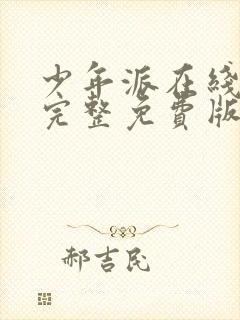 少年派在线
完整免費版
郝吉民